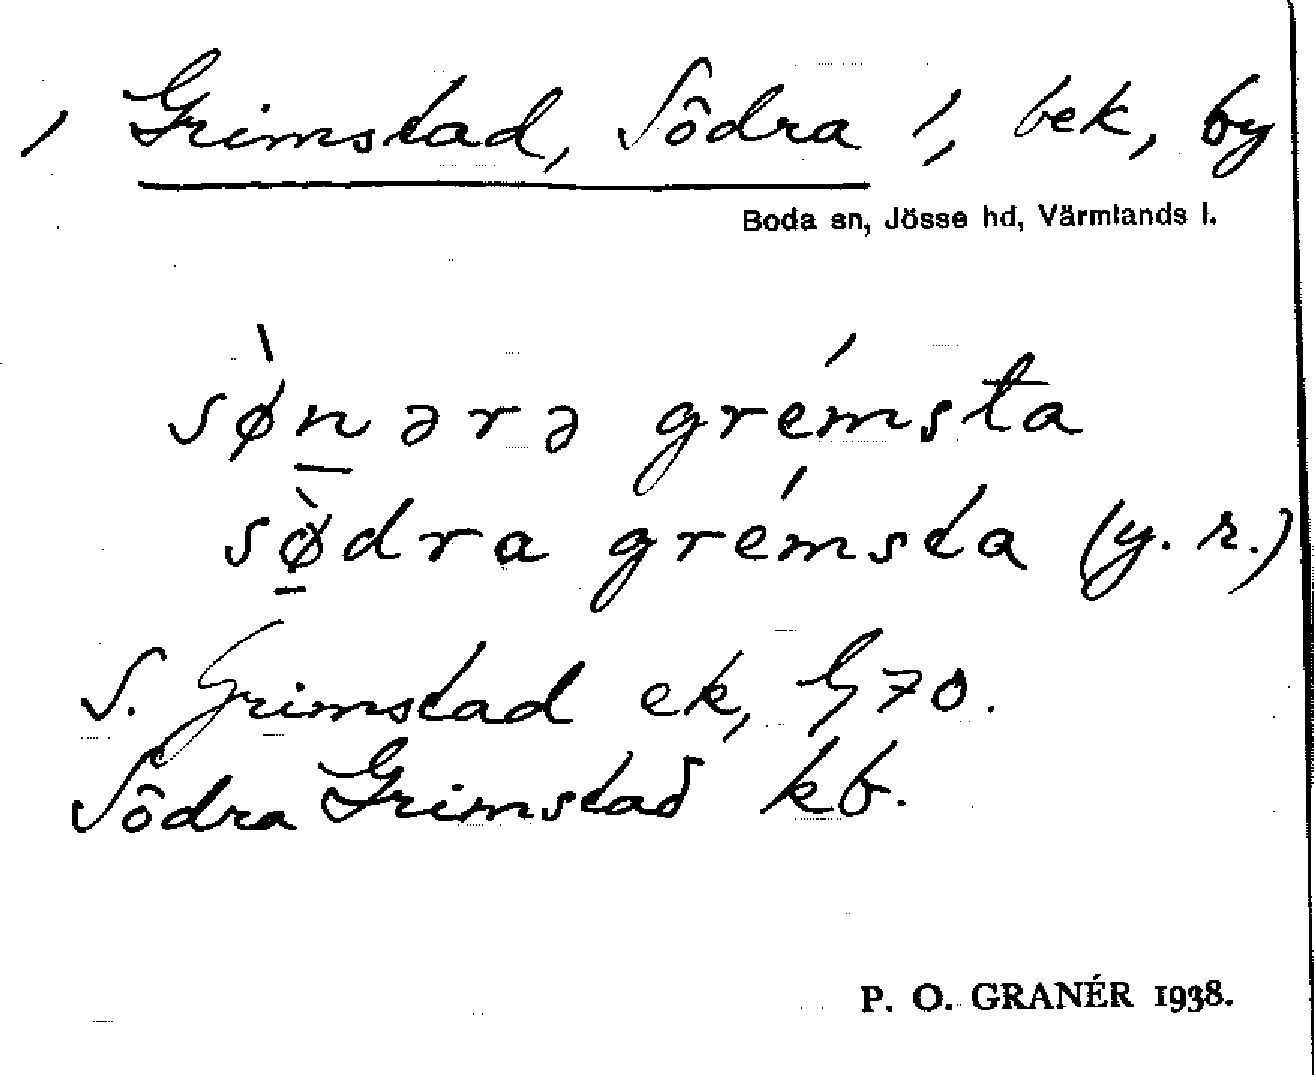 / Grimstad, Södra /, bek, by
Boda sn, Jösse hd, Värmlands l.
sø̀nərə grémsta
sø̀dra grémsta (y. r.)
S. Grimstad ek, G 70.
Södra Grimstad kb.
P. O. GRANÉR 1938.